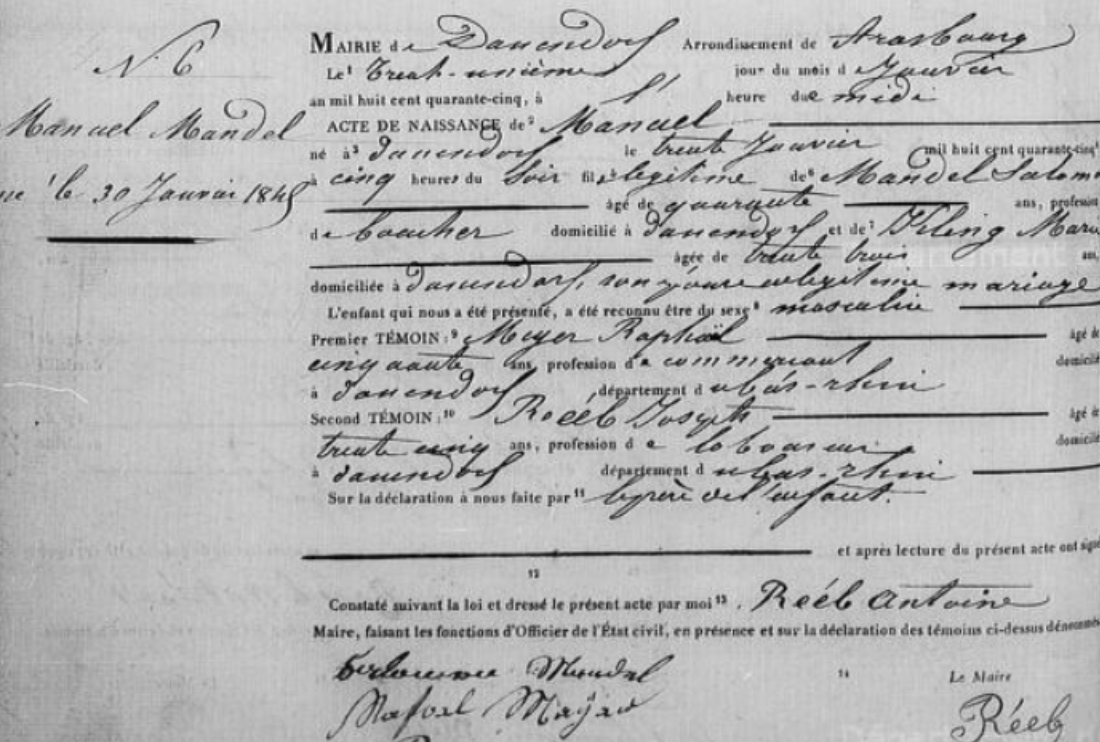 N. 6
Manuel Mandel
né le 30 Janvier 1845
MAIRIE de Dauendorf Arrondissement de Strasbourg
Le¹ Trente-unième jour du mois d Janvier
an mil huit cent quarante-cinq, à heure du midi
ACTE DE NAISSANCE de² Manuel
né à³ Dauendorf le trente Janvier mil huit cent quarante-cinq⁴
à cinq heures du Soir fils⁵ légitime de⁶ Mandel Salom
âgé de quarante ans, profession
de boucher domicilié à Dauendorf et de⁷ Mari
âgée de trente trois ans,
domiciliée à Dauendorf, son épouse en légitime mariage
L'enfant qui nous a été présenté, a été reconnu être du sexe⁸ masculin
Premier TÉMOIN:⁹ Meyer Raphaël âgé de
cinquante ans, profession de commerçant domicilié
à Dauendorf, département du bas-rhin
Second TÉMOIN:¹⁰ Rééb Joseph âgé de
trente cinq ans, profession de laboureur domicilié
à Dauendorf département du bas-rhin
Sur la déclaration à nous faite par¹¹ le père de l'enfant.
et après lecture du présent acte ont signé
¹²
Constaté suivant la loi et dressé le présent acte par moi¹³, Rééb Antoine
Maire, faisant les fonctions d'Officier de l'État civil, en présence et sur la déclaration des témoins ci-dessus dénommés
Mandel ¹⁴ Le Maire
Rafael Réeb